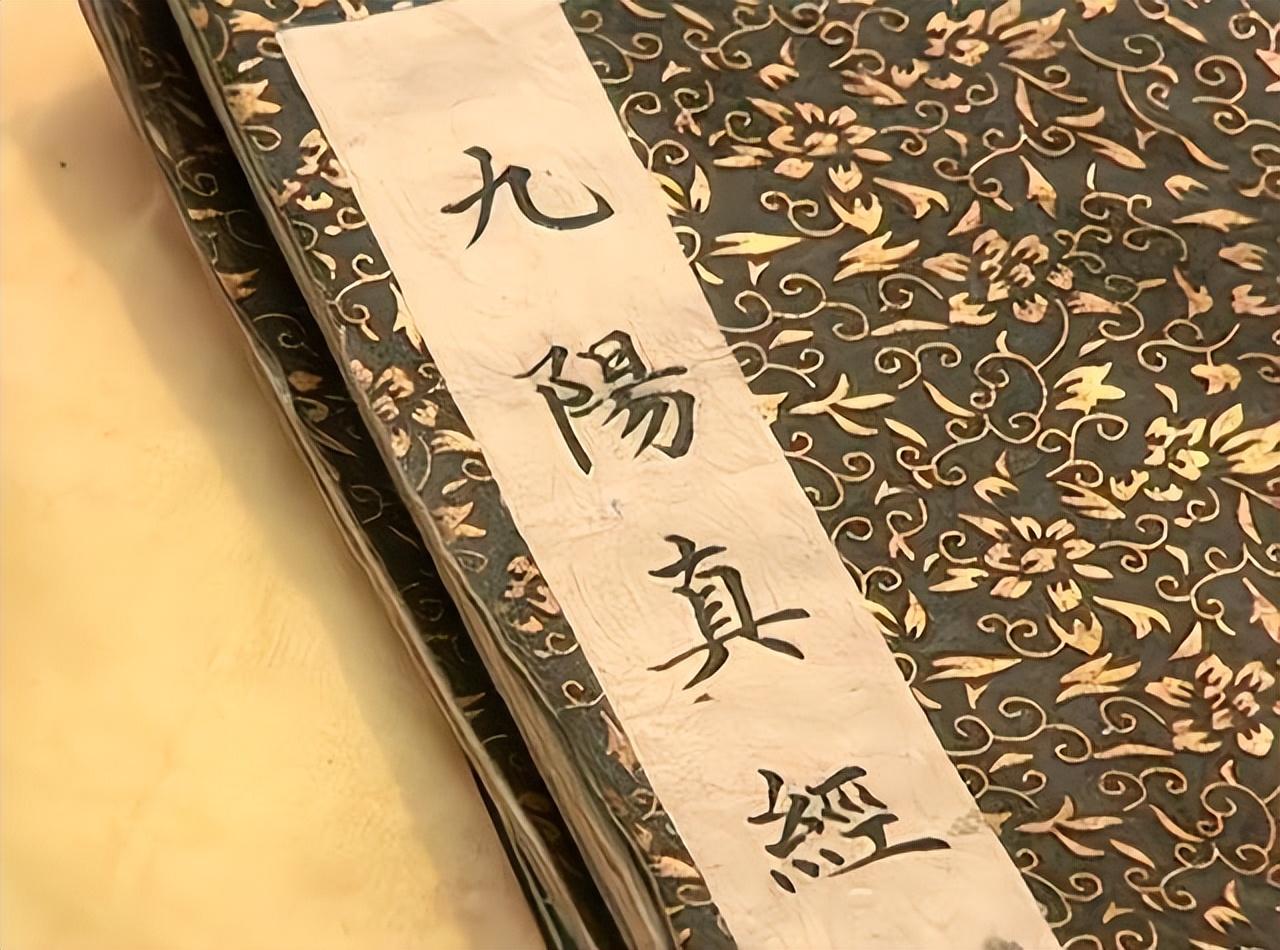 九陽真經